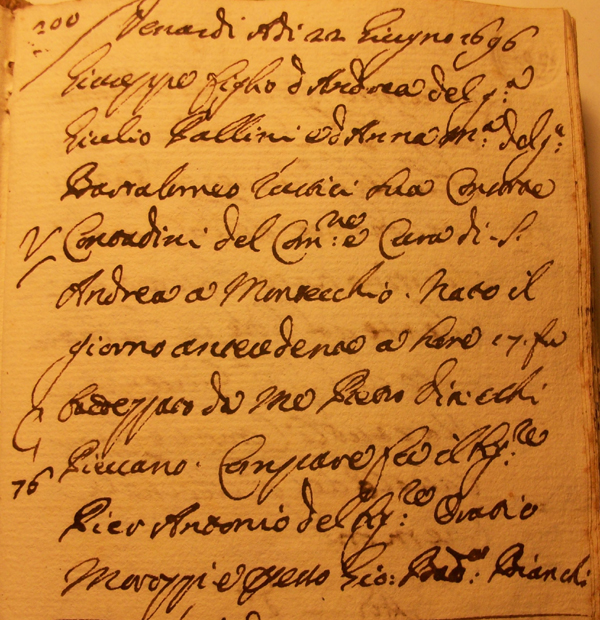 200 Venardi Adi 22 Giugno 1696
Giuseppe figlio d'Andrea del q.
Giulio Pallini e d'Anna M.a del q.
Bartolomeo sua Consorte
Contadini del Com.ne e Cura di S.
Andrea a Montecchio. Nato il
giorno antecedente a hore 17. fu
battezzato da Me Pietro
76 Pievano. Compare fu il Sig.re
Pier Antonio del Sig.re Orazio
Marozzi e Gio: Batt.a Bianchi